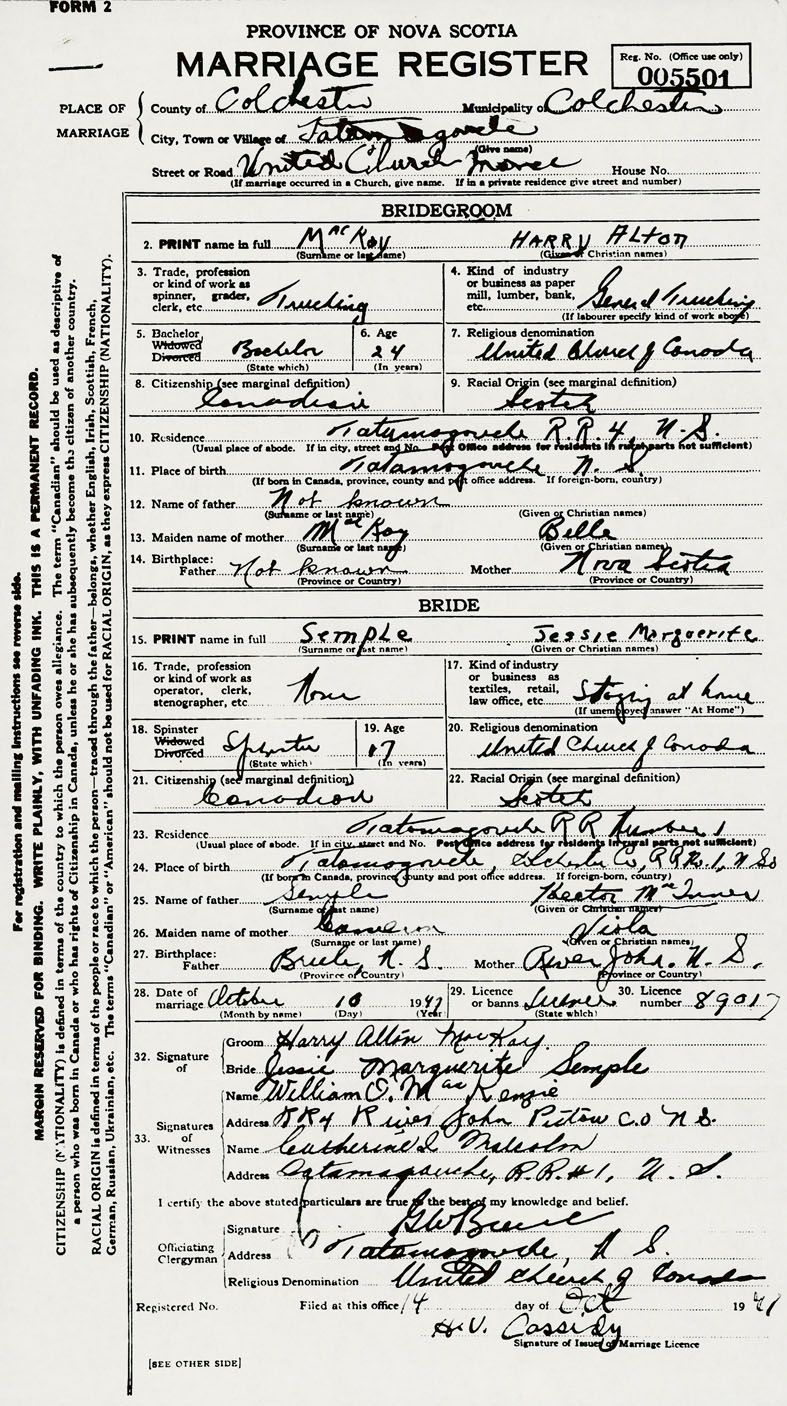 FORM 2
PROVINCE OF NOVA SCOTIA
MARRIAGE REGISTER
Reg. No. (Office use only)
005501
PLACE OF MARRIAGE
County of Colchester Municipality of Colchester
City, Town or Village of Tatamagouche
(Give name)
Street or Road United Church Manse House No.
(If marriage occurred in a Church, give name. If in a private residence give street and number)
BRIDEGROOM
2. PRINT name in full MacKay HARRY ALTON
(Surname or last name) (Given or Christian names)
3. Trade, profession or kind of work as spinner, grader, clerk, etc. Trucking
4. Kind of industry or business as paper mill, lumber, bank, etc. General Trucking
(If labourer specify kind of work above)
5. Bachelor Widowed Divorced Bachelor
(State which)
6. Age 24
(In years)
7. Religious denomination
United Church of Canada
8. Citizenship (see marginal definition)
Canadian
9. Racial Origin (see marginal definition)
Scotch
10. Residence Tatamagouche R.R. 4, N.S.
(Usual place of abode. If in city, street and No. Post Office address for residents in rural parts not sufficient)
11. Place of birth Tatamagouche N. S.
(If born in Canada, province, county and post office address. If foreign-born, country)
12. Name of father Not known
(Surname or last name) (Given or Christian names)
13. Maiden name of mother MacKay Belle
(Surname or last name) (Given or Christian names)
14. Birthplace:
Father Not known Mother Nova Scotia
(Province or Country) (Province or Country)
BRIDE
15. PRINT name in full Semple Jessie Marguerite
(Surname or last name) (Given or Christian names)
16. Trade, profession or kind of work as operator, clerk, stenographer, etc. None
17. Kind of industry or business as textiles, retail, law office, etc. Staying at home
(If unemployed answer "At Home")
18. Spinster Widowed Divorced Spinster
(State which)
19. Age 17
(In years)
20. Religious denomination
United Church of Canada
21. Citizenship (see marginal definition)
Canadian
22. Racial Origin (see marginal definition)
Scotch
23. Residence Tatamagouche R R Number 1
(Usual place of abode. If in city, street and No. Post Office address for residents in rural parts not sufficient)
24. Place of birth Tatamagouche, Colchester Co, R.R. No. 1, N.S.
(If born in Canada, province, county and post office address. If foreign-born, country)
25. Name of father Semple Hector
(Surname or last name) (Given or Christian names)
26. Maiden name of mother Cameron Viola
(Surname or last name) (Given or Christian names)
27. Birthplace:
Father Brule, N. S. Mother River John, N. S.
(Province or Country) (Province or Country)
28. Date of marriage October 10 1947
(Month by name) (Day) (Year)
29. Licence or banns License
(State which)
30. Licence number 89017
32. Signature of
Groom Harry Alton MacKay
Bride Jessie Marguerite Semple
33. Signatures of Witnesses
Name William O. MacKenzie
Address RR4 River John Pictou C.O N S.
Name Catherine I. Malcolm
Address Tatamagouche, R.R.#1, N. S.
I certify the above stated particulars are true to the best of my knowledge and belief.
Officiating Clergyman
Signature
Address Tatamagouche, N S.
Religious Denomination United Church of Canada
Registered No. Filed at this office 14 day of Oct 1947
H.V. Cassidy
Signature of Issuer of Marriage Licence
[SEE OTHER SIDE]
For registration and mailing instructions see reverse side.
MARGIN RESERVED FOR BINDING. WRITE PLAINLY, WITH UNFADING INK. THIS IS A PERMANENT RECORD.
CITIZENSHIP (NATIONALITY) is defined in terms of the country to which the person owes allegiance. The term "Canadian" should be used as descriptive of
a person who was born in Canada or who has rights of Citizenship in Canada, unless he or she has subsequently become the citizen of another country.
RACIAL ORIGIN is defined in terms of the people or race to which the person—traced through the father—belongs, whether English, Irish, Scottish, French,
German, Russian, Ukrainian, etc. The terms "Canadian" or "American" should not be used for RACIAL ORIGIN, as they express CITIZENSHIP (NATIONALITY).